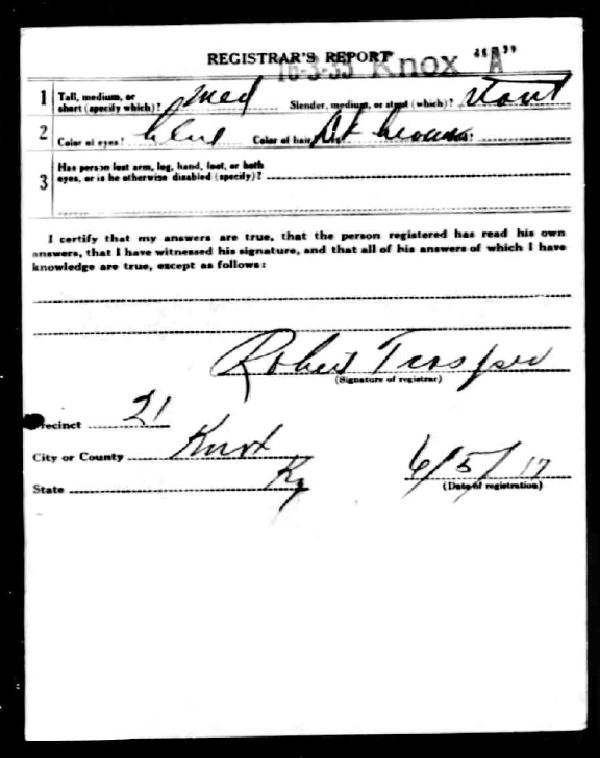 REGISTRAR'S REPORT
16-3-33 Knox "A"
1 Tall, medium, or short (specify which)? Med Slender, medium, or stout (which)? Stout
2 Color of eyes? blue Color of hair? Dk brown
3 Has person lost arm, leg, hand, foot, or both eyes, or is he otherwise disabled (specify)?
I certify that my answers are true, that the person registered has read his own
answers, that I have witnessed his signature, and that all of his answers of which I have
knowledge are true, except as follows:
Robert Trosper
(Signature of registrar)
Precinct 21
City or County Knox
State Ky
6/5/17
(Date of registration)